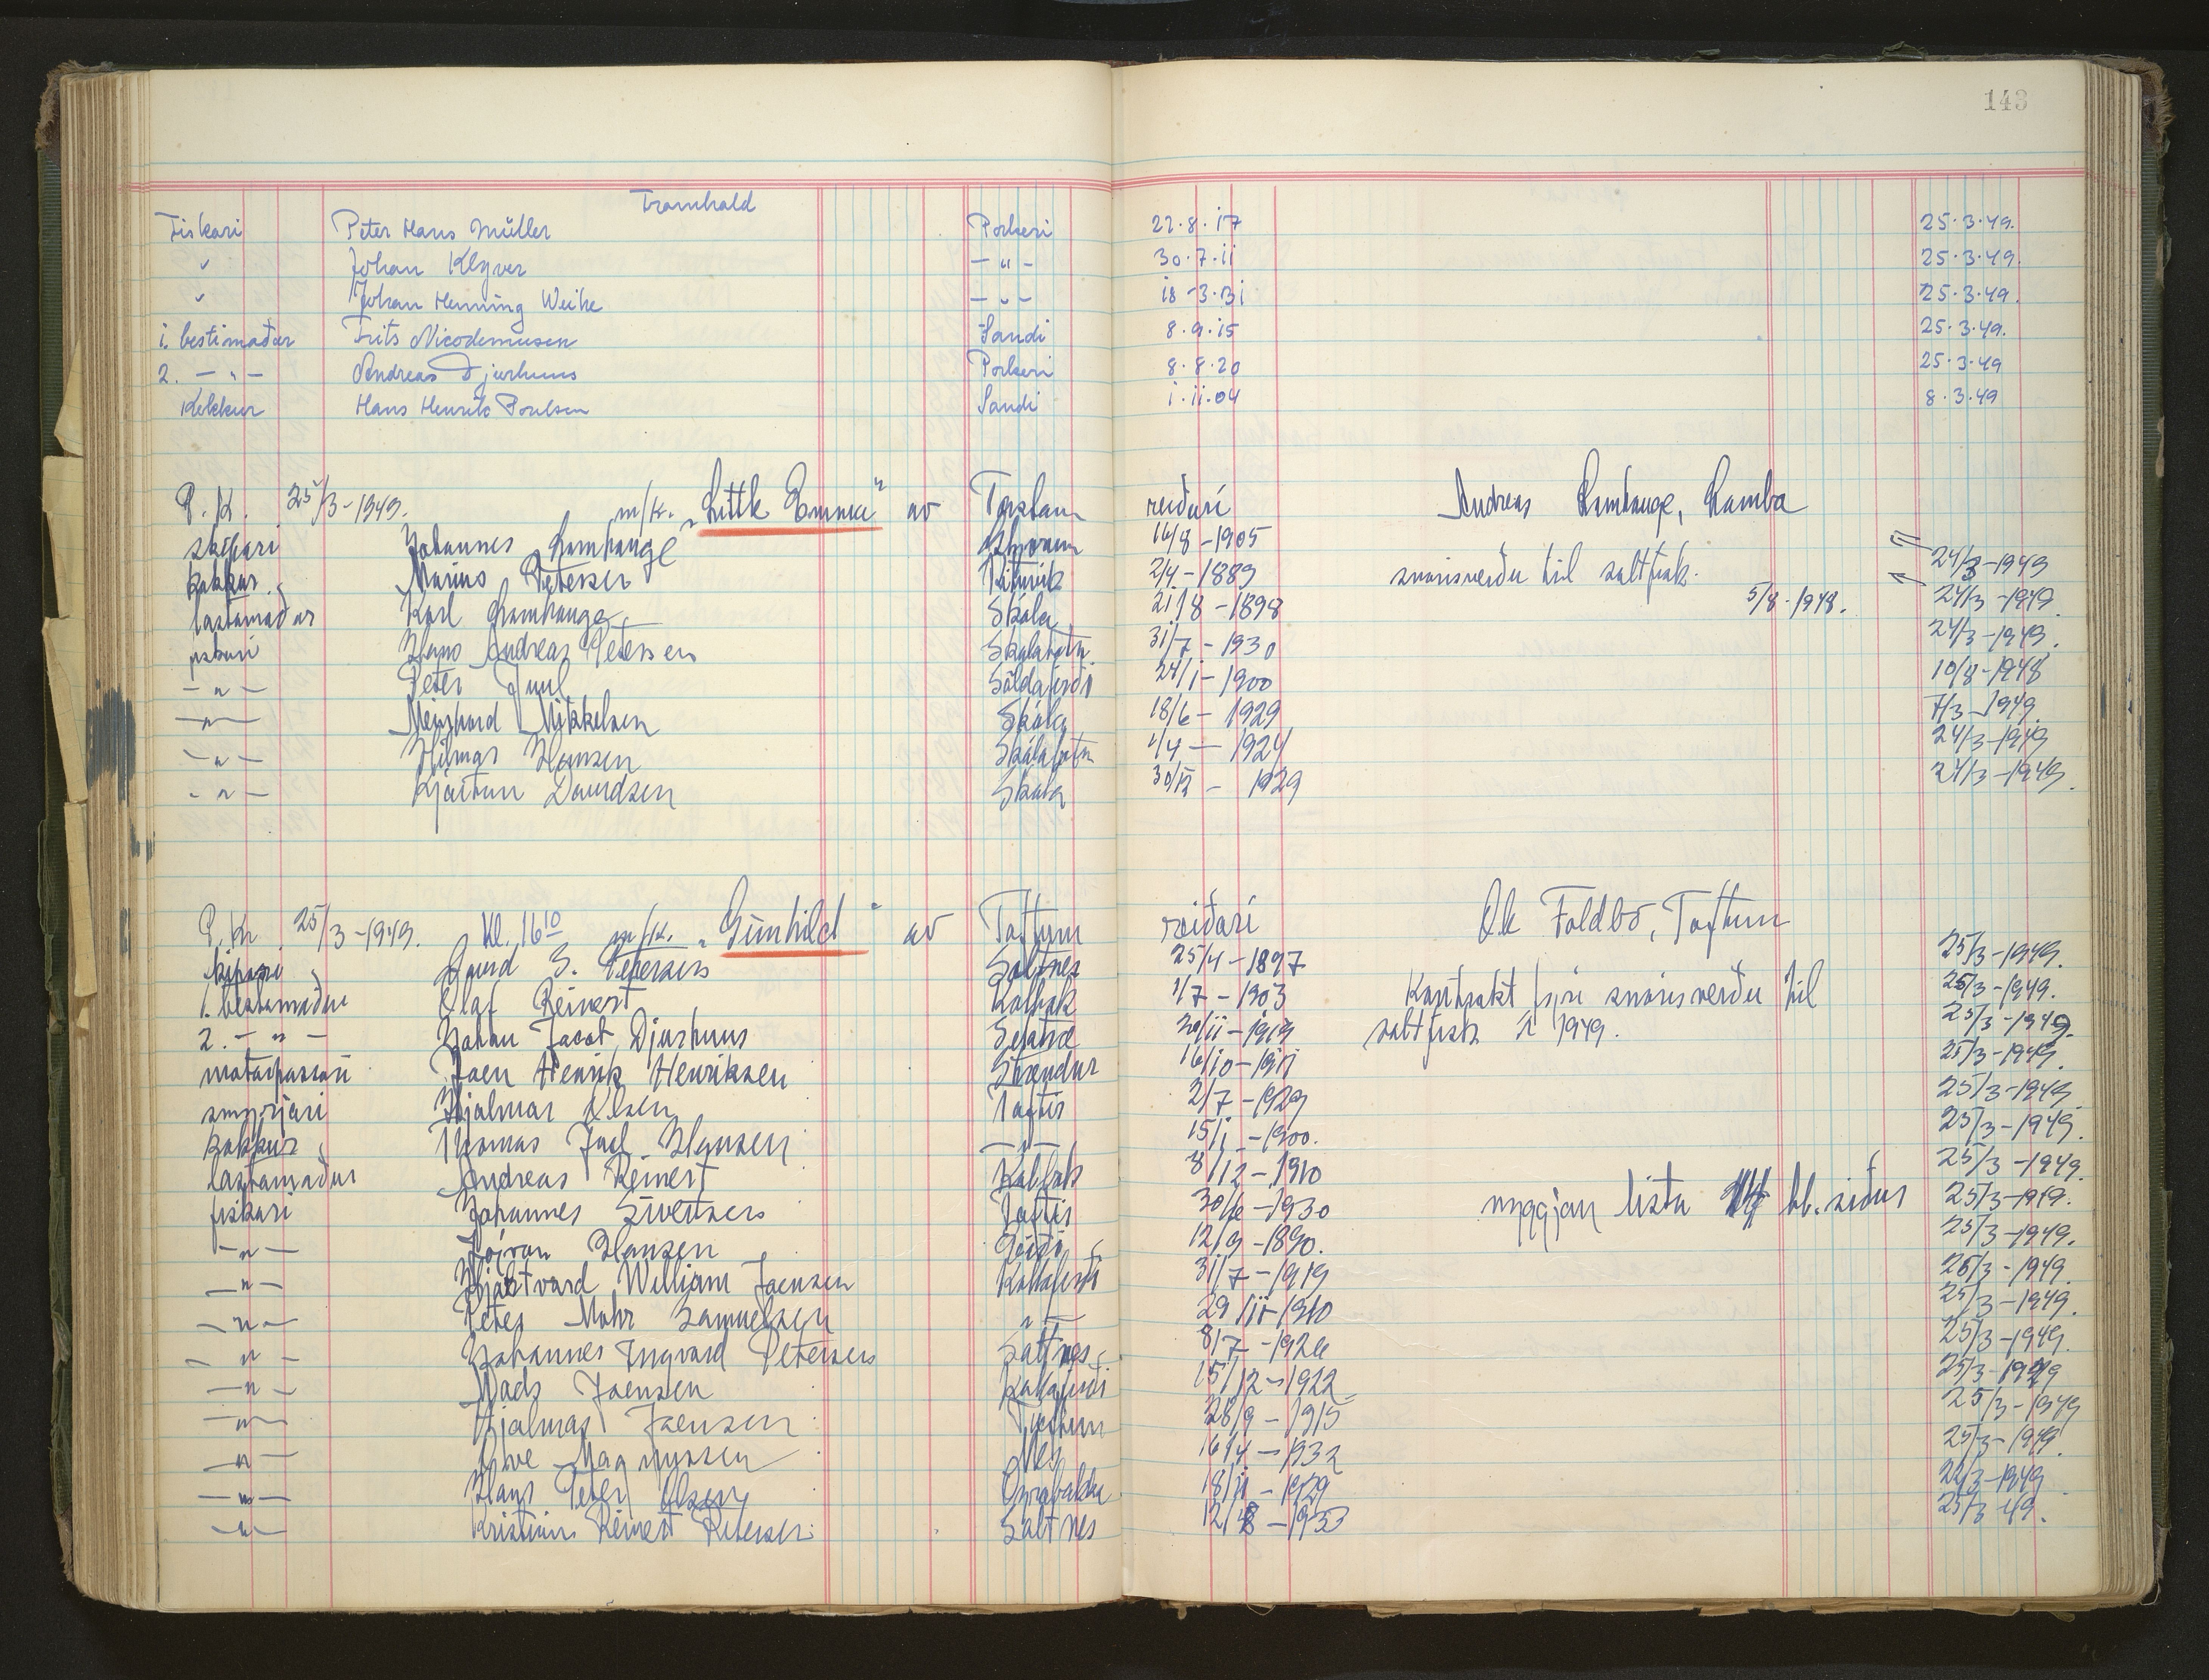 143
Framhald
Fiskari Peter Hans Müller Porkeri 22.8.17 25.3.49.
" Johan Klyver – " – 30.7.11 25.3.49.
" Johan Henning Weihe – " – 18-3.31 25.3.49.
1. bestimaður Frits Nicodemusen Sandi 8.9.15 25.3.49.
2. – " – Andreas Djurhuus Porkeri 8.8.20 25.3.49
Kokkur Hans Henrik Poulsen Sandi 1.11.04 8.3.49
P.K. 25/3-1949. m/k. "Little Emma" av reiðari Andreas Lamhauge, Lamba
skipari Johannes Lamhauge 16/8-1905
kokkur Marius Petersen 2/4-1889 snorisverðu til saltfisk. 24/3-1949
lastamaður Karl Lamhauge Skála 21/8-1898 5/8-1948. 24/3-1949.
fiskari Hans Andreas Petersen Skálabotn 31/7-1930 24/3-1949.
– " – Peter Juul Søldafirði 24/1-1900 10/8-1948
– " – Meinhard Mikkelsen Skála 18/6-1929 7/3-1949.
– " – Hilmar Hansen Skálabotn 1/4-1924 24/3-1949
– " – Kjartan Davidsen Skála 1929 24/3-1949.
P.Kr. 25/3-1949. Kl. 16 10 m/k. "Gunhild" av Toftum reiðari Ole Foldbo, Toftum
skipari S. Petersen Saltnes 25/4-1897 25/3-1949.
1. bestamaður Olaf Reinert Kolbak 1/7-1903 Kontrakt fyri snorisverðu til 25/3-1949.
2. – " – Johan Jacob Djurhuus 30/11-1919 saltfisk í 1949. 25/3-1949.
matarpassari Joen Henrik Henriksen Strendur 16/10-1911 25/3-1949.
smyrjari Hjalmar Olsen Toftir 2/7-1929 25/3-1949
kokkur Thomas Juel Hansen – " – 15/1-1900. 25/3-1949.
lastamaður Andreas Reinert Kolbak 8/12-1910 25/3-1949.
fiskari Johannes Sivertsen Toftir 30/6-1930 nyggjan lista bl. síður 25/3-1949.
– " – Jógvan Hansen 12/9-1890. 25/3-1949.
– " – Hjartvard William Joensen Kollafirði 31/7-1919 26/3-1949.
– " – Peter Mohr Samuelsen – " – 29/11-1910 25/3-1949.
– " – Johannes Ingvard Petersen Saltnes 8/7-1926 25/3-1949.
– " – Mads Joensen Kollafirði 15/12-1922 25/3-1949
– " – Hjalmar Joensen 28/9-1915 25/3-1949
– " – Ove Magnussen Nes 16/4-1932 25/3-1949.
– " – Hans Peter Olsen 18/11-1929 22/3-1949
– " – Kristian Reinert Petersen Saltnes 12/8-1933 25/3-49.